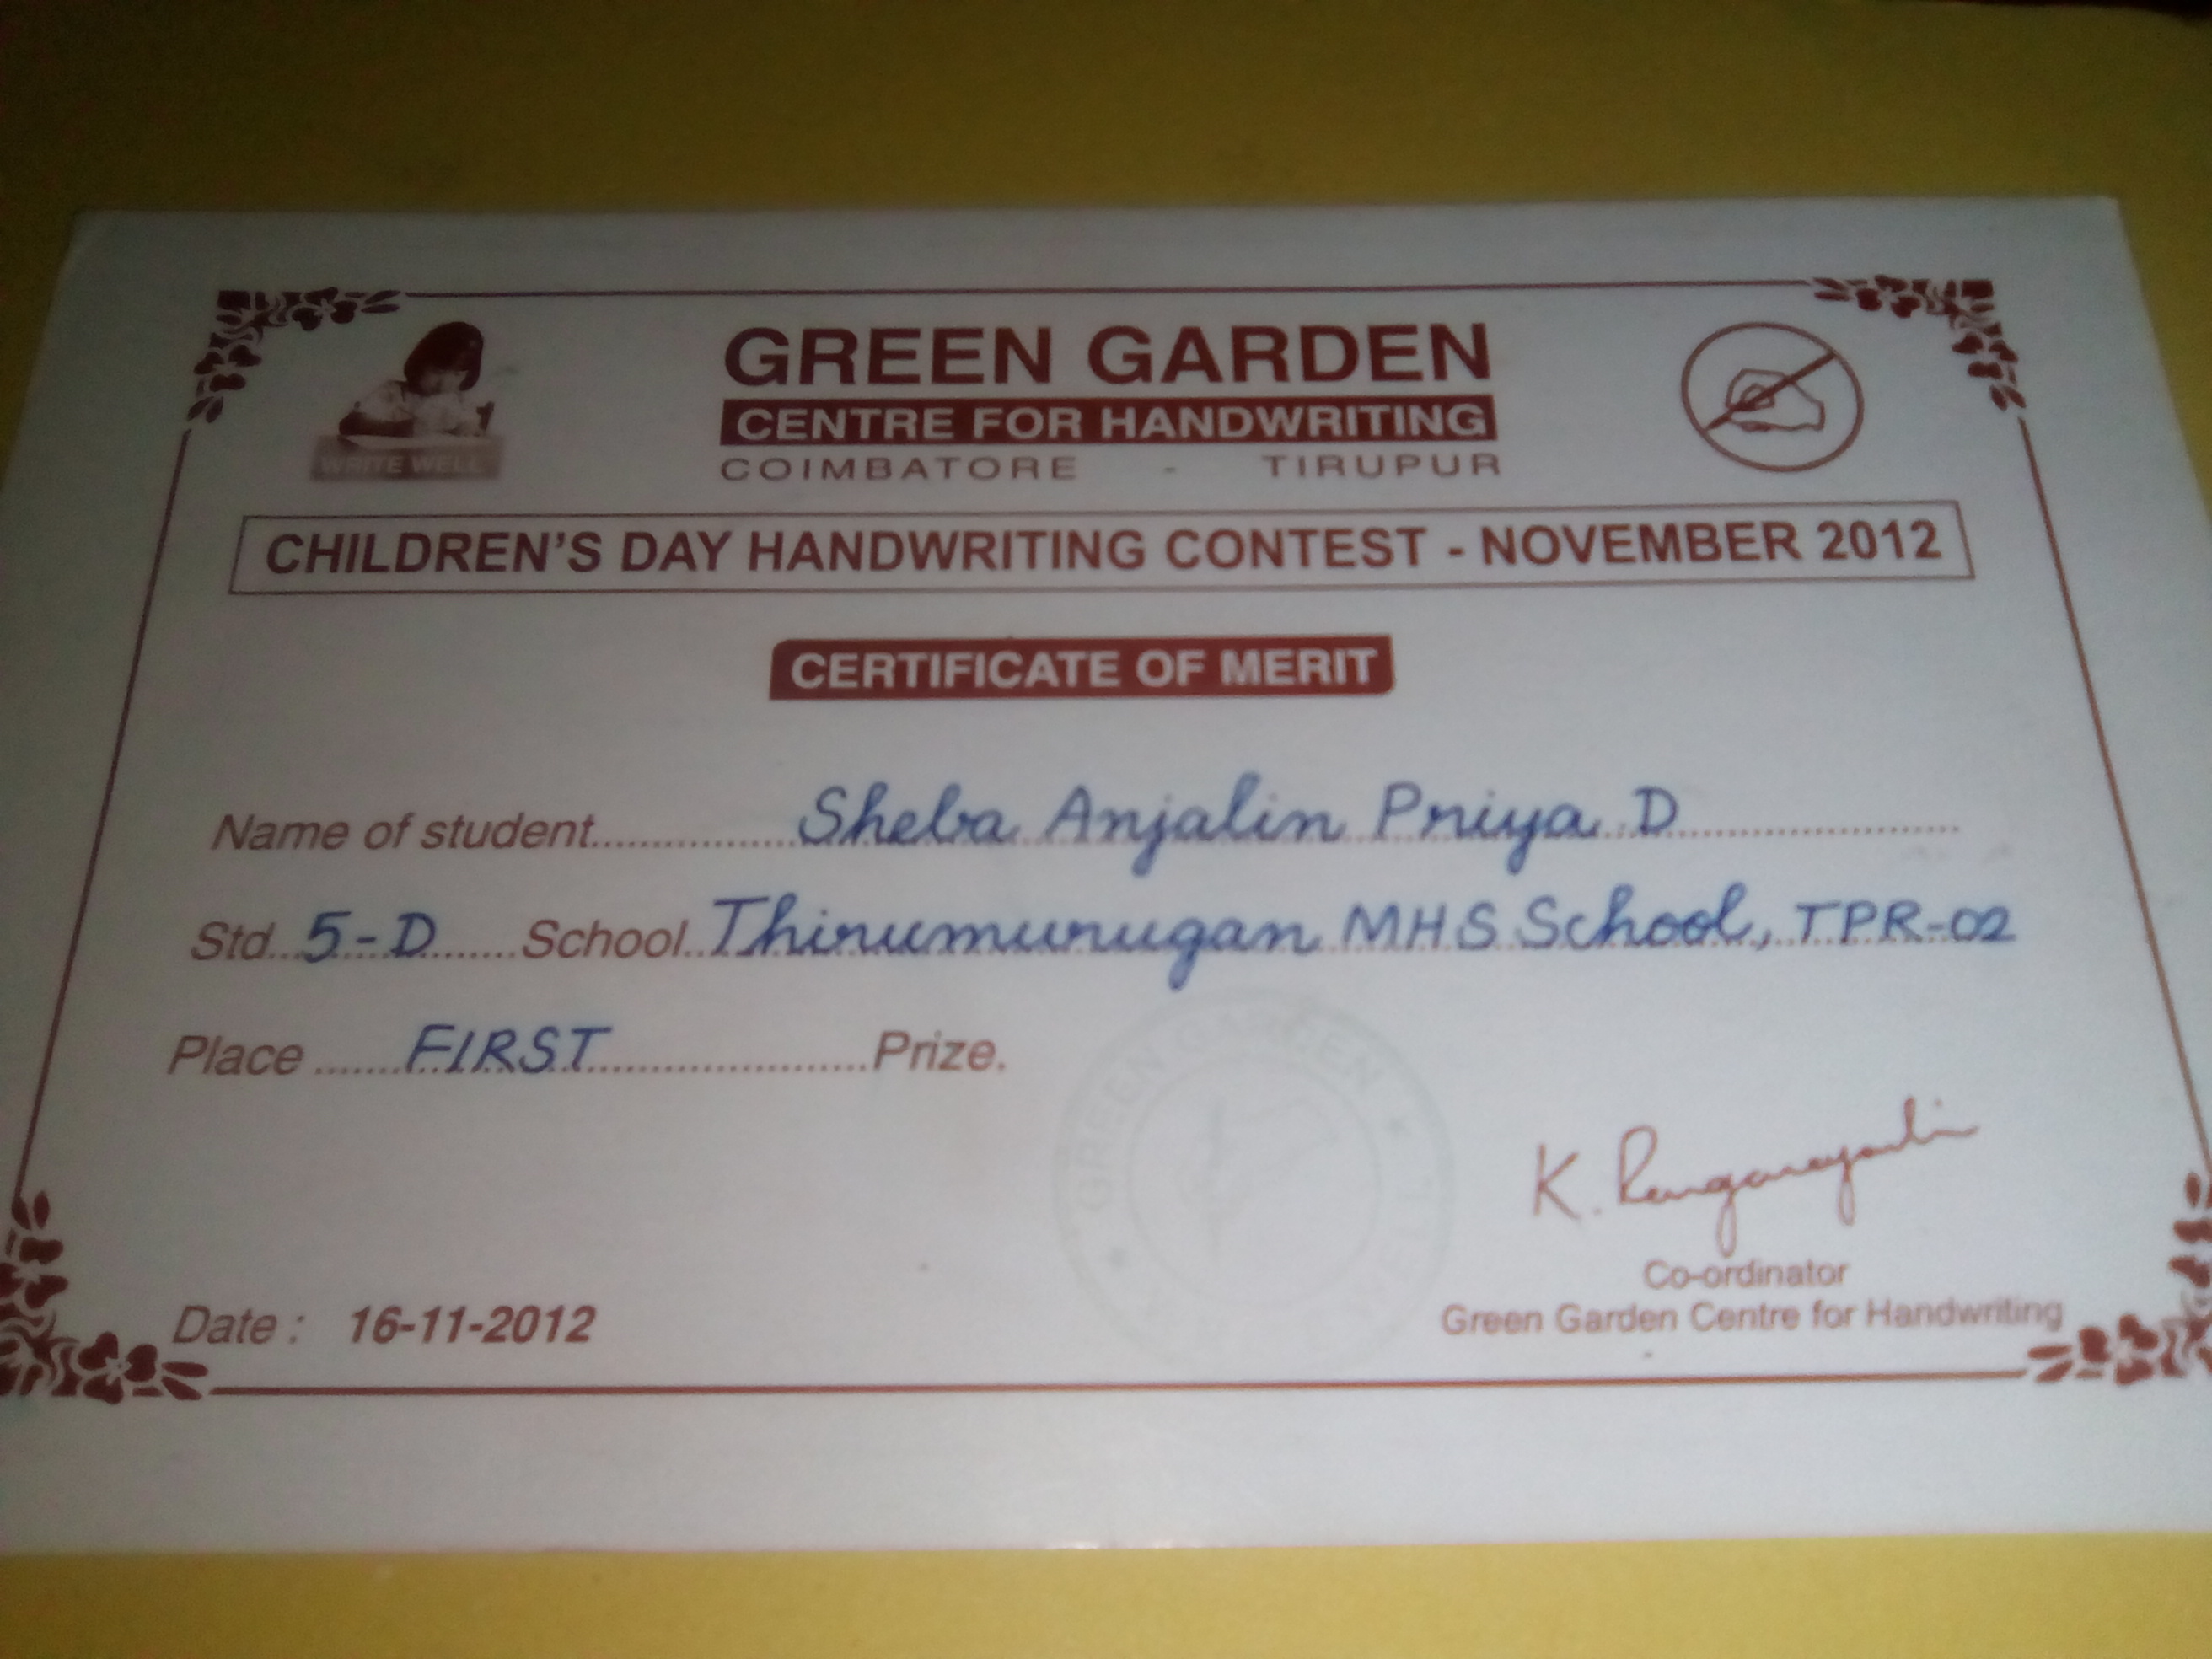 WRITE WELL
GREEN GARDEN
CENTRE FOR HANDWRITING
COIMBATORE - TIRUPUR
CHILDREN'S DAY HANDWRITING CONTEST - NOVEMBER 2012
CERTIFICATE OF MERIT
Name of student.................Sheba Anjalin Priya D........................
Std...5-D.......School..Thirumurugan MHS School, TPR-02
Place .......FIRST.......................Prize.
GREEN GARDEN
K. Ranganayaki
Co-ordinator
Green Garden Centre for Handwriting
Date : 16-11-2012